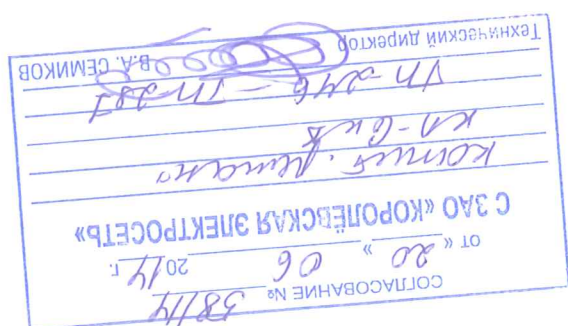 СОГЛАСОВАНИЕ № 58/14
от « 20 » 06 2014 г.
С ЗАО «КОРОЛЁВСКАЯ ЭЛЕКТРОСЕТЬ»
КЛ-6 кВ
ТП-246 – ТП-287
Технический директор В.А. СЕМИКОВ